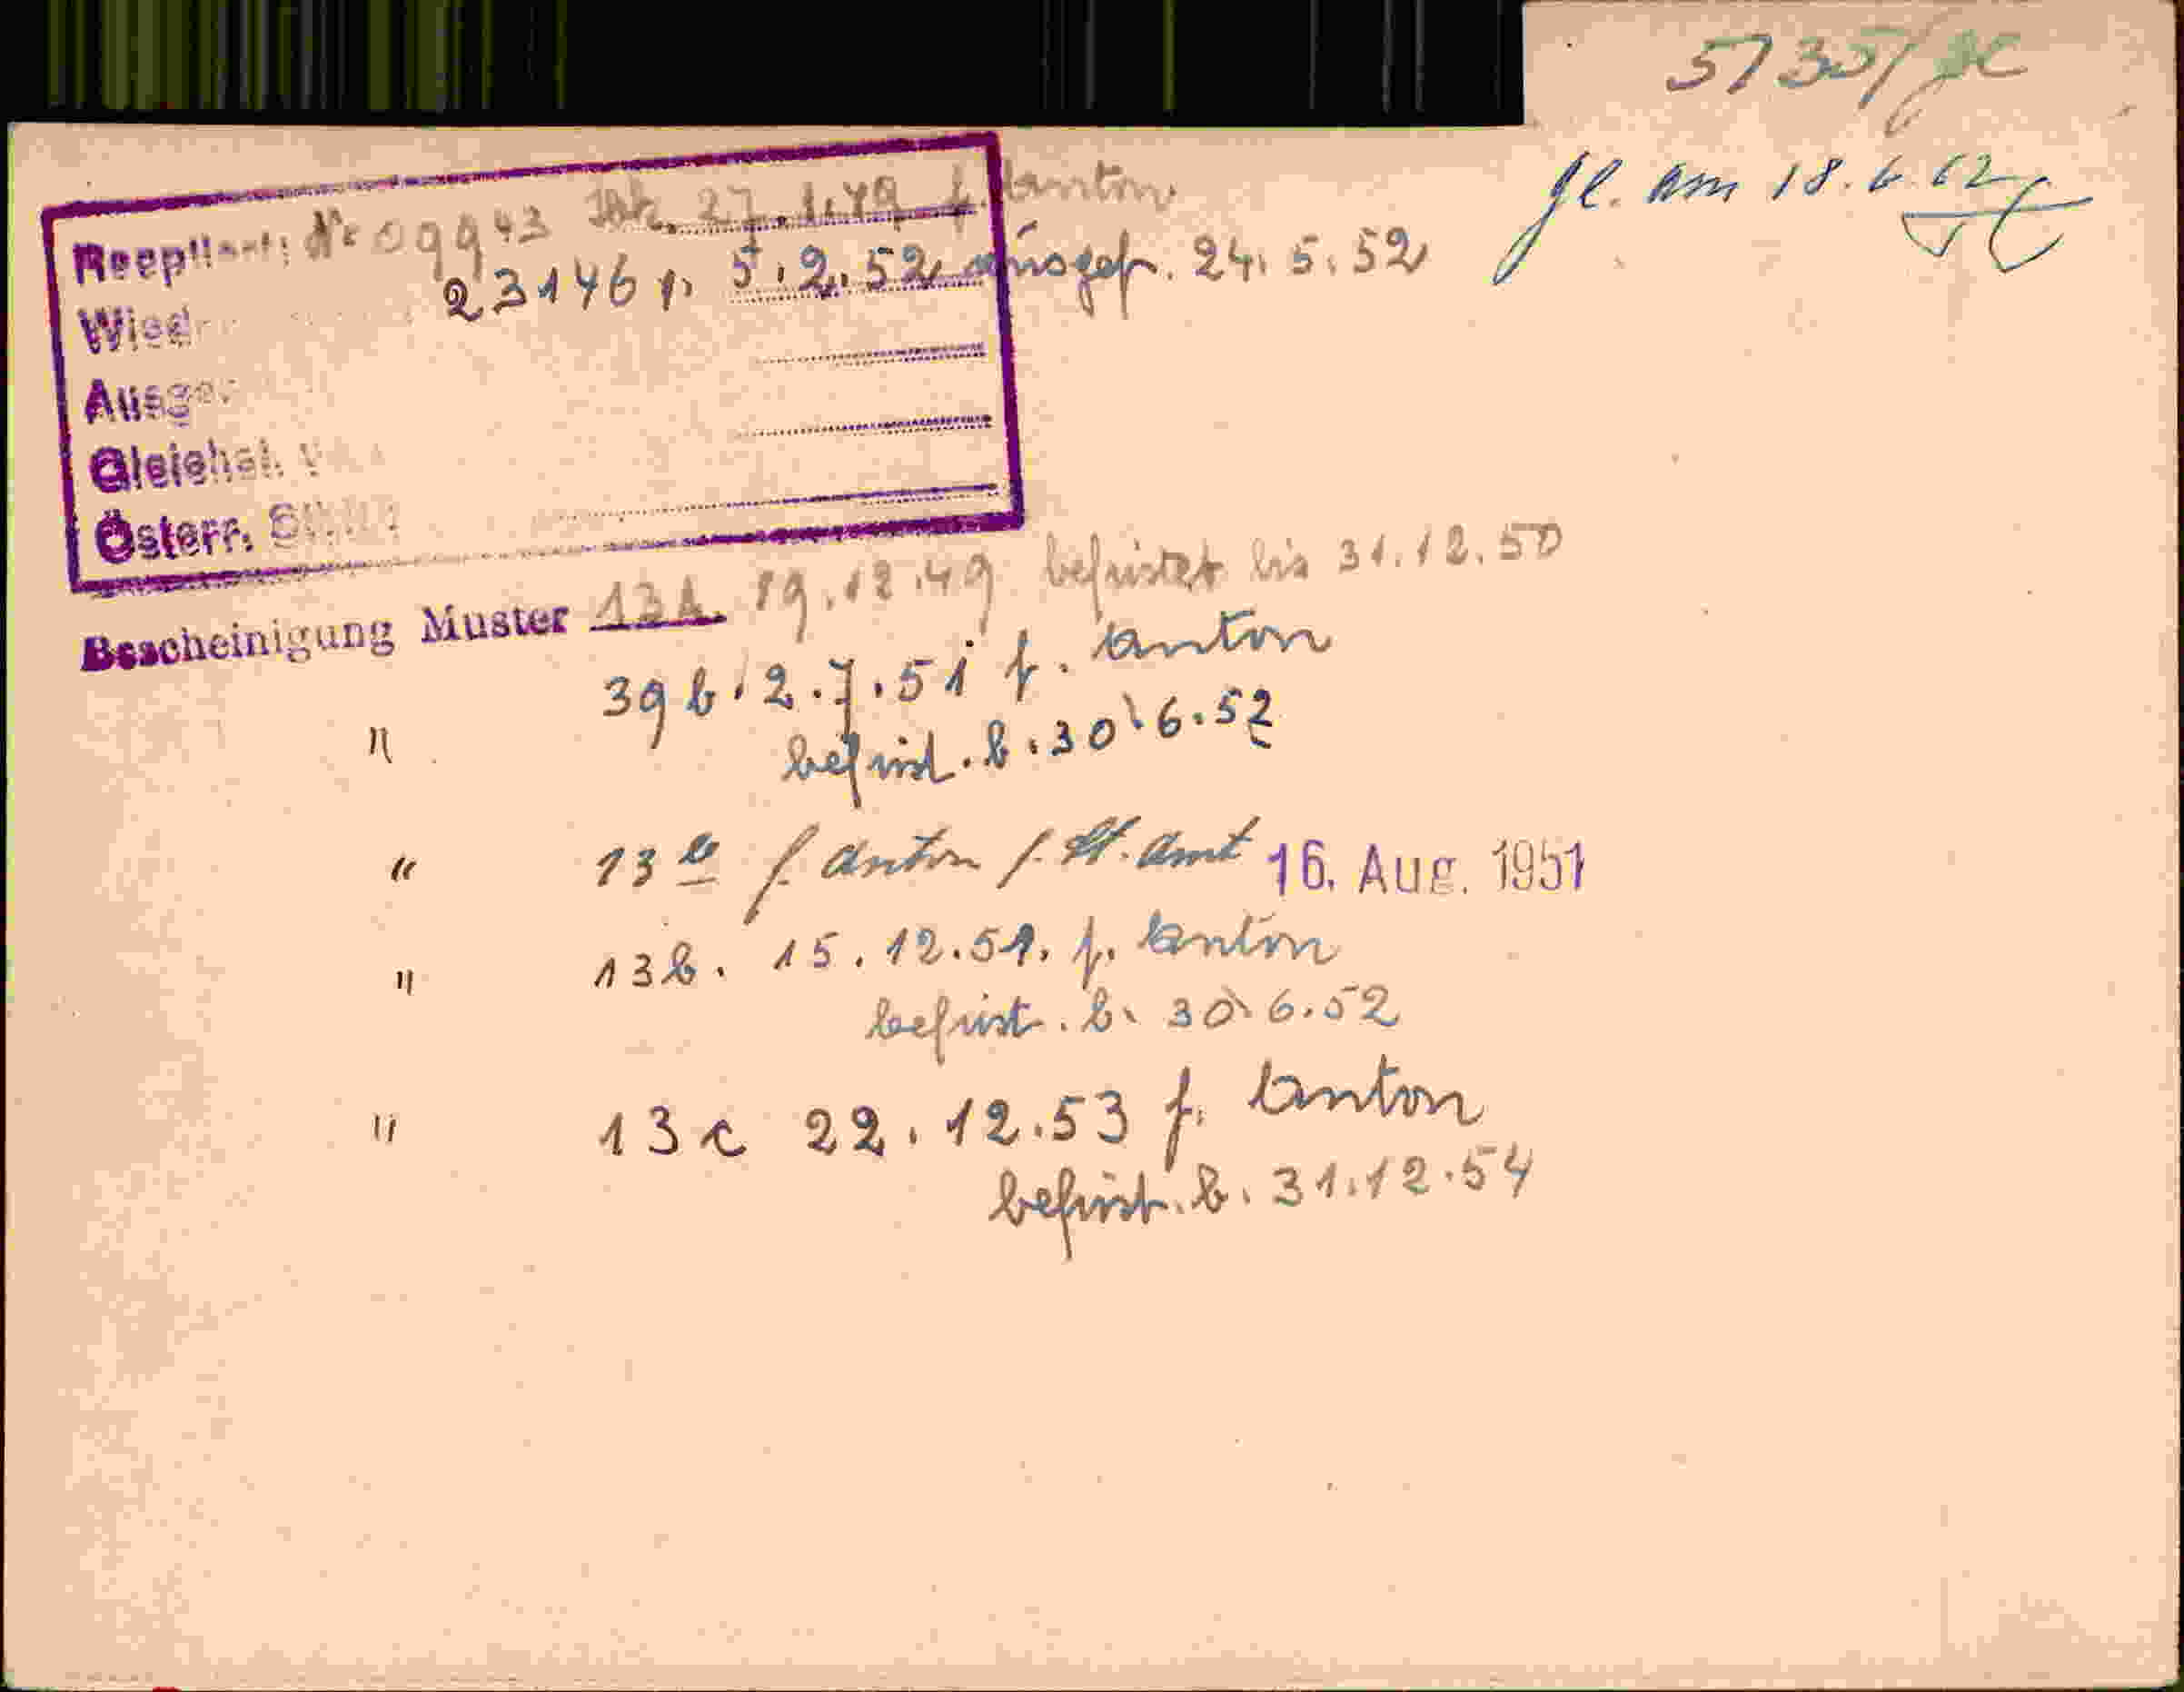 5735/
gl. am 18.6.62
Reepl Nr 09943 27.1.49 f. Anton
23146 v. 5.2.52 ausgef. 24.5.52
Wied
Ausge
Gleichst. v
Österr.
Bescheinigung Muster 13A. 19.12.49 befristet bis 31.12.50
" 39b. 2.7.51 f. Anton
befrist. b. 30.6.52
" 13b f. Anton f. St. Amt 16. Aug. 1951
" 13b. 15.12.51. f. Anton
befrist. b. 30.6.52
" 13c 22.12.53 f. Anton
befrist. b. 31.12.54